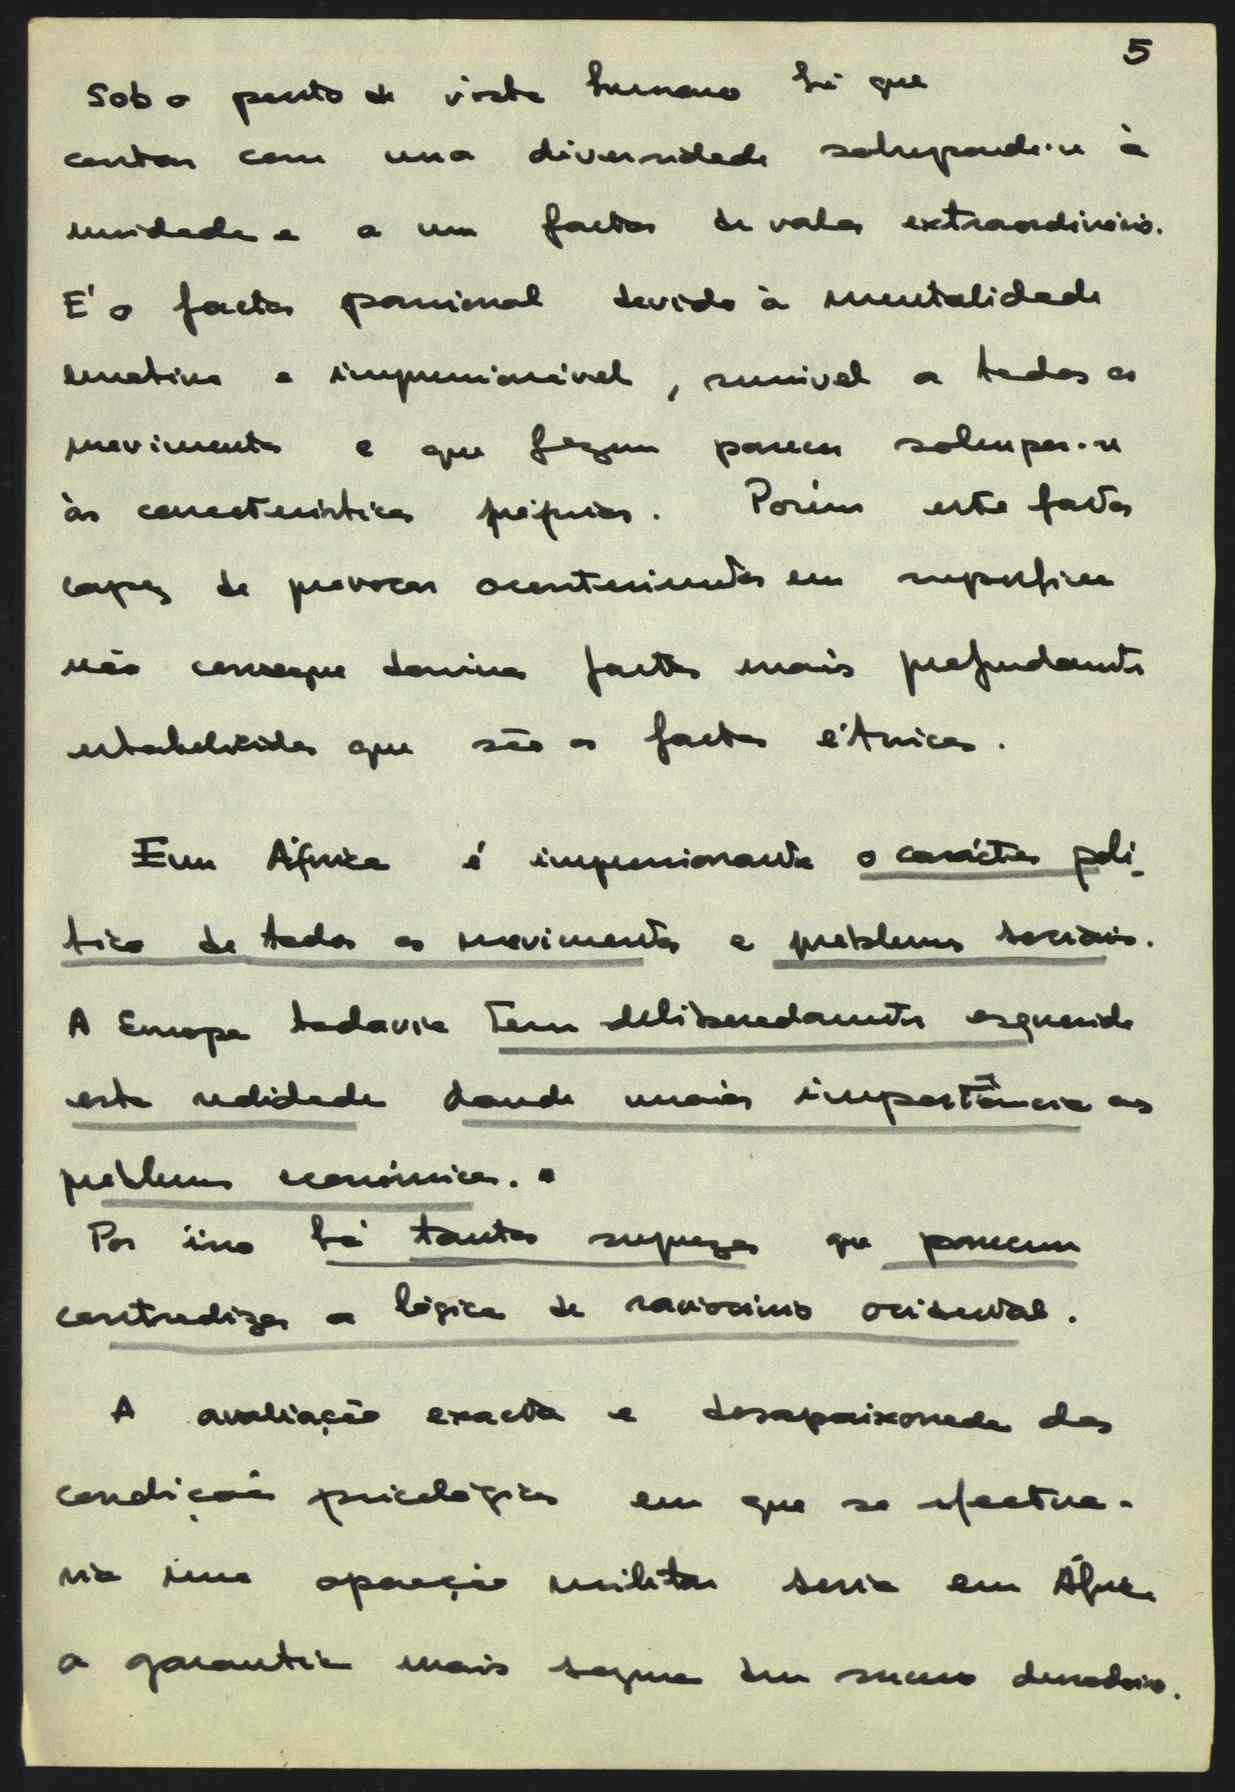 5
Sob o ponto de vista humano há que
contar com uma diversidade sobrepondo-se à
unidade e a um factor de valor extraordinário.
É o factor passional devido à mentalidade
emotiva e impressionável, sensível a todos os
movimentos e que fazem parecer sobrepor-se
às características próprias. Porém este factor
capaz de provocar acontecimentos em superfície
não consegue dominar factores mais profundamente
estabelecidos que são os factores étnicos.
Em África é impressionante o carácter polí-
tico de todos os movimentos e problemas sociais.
A Europa todavia tem deliberadamente esquecido
esta realidade dando maior importância aos
problemas económicos.
Por isso há tantas surpresas que parecem
contradizer a lógica de raciocínio ocidental.
A avaliação exacta e desapaixonada das
condições psicológicas em que se efectua-
ria uma operação militar seria em África
a garantia mais segura dum sucesso duradoiro.